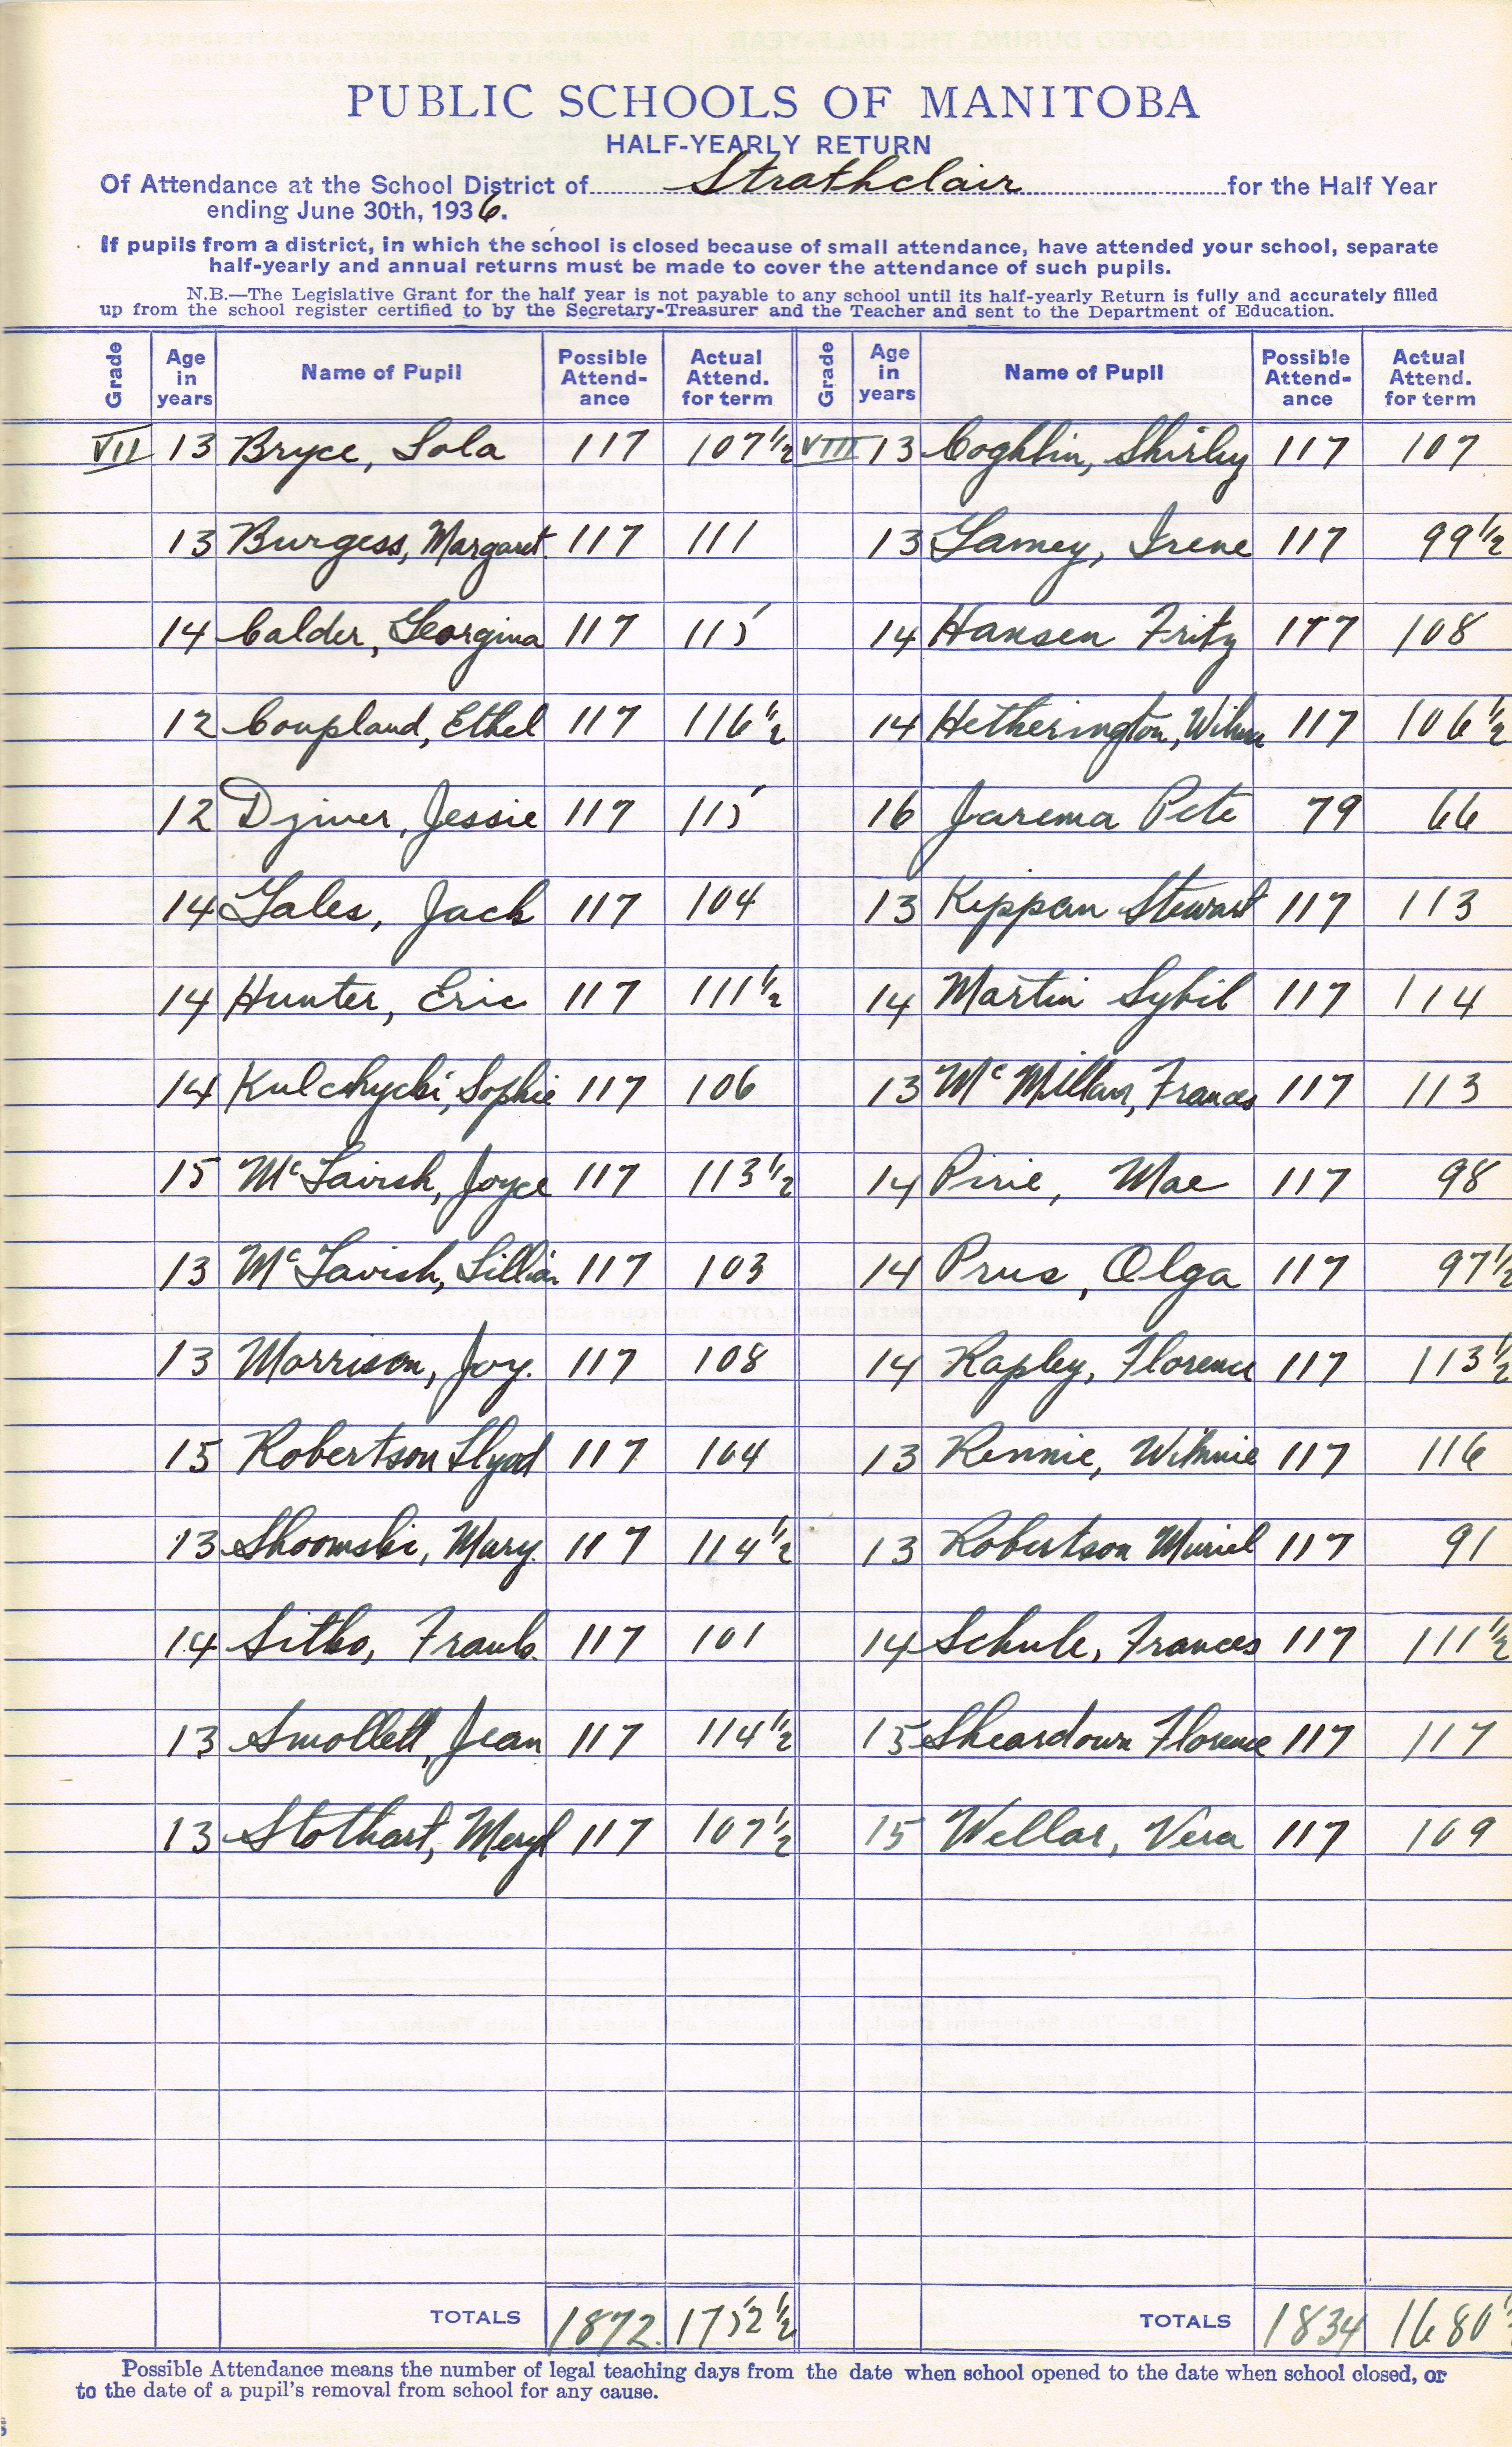 PUBLIC SCHOOLS OF MANITOBA
HALF-YEARLY RETURN
Of Attendance at the School District of Strathclair for the Half Year
ending June 30th, 1936.
If pupils from a district, in which the school is closed because of small attendance, have attended your school, separate
half-yearly and annual returns must be made to cover the attendance of such pupils.
N.B.—The Legislative Grant for the half year is not payable to any school until its half-yearly Return is fully and accurately filled
up from the school register certified to by the Secretary-Treasurer and the Teacher and sent to the Department of Education.
Grade Age in years Name of Pupil Possible Attend-ance Actual Attend. for term Grade Age in years Name of Pupil Possible Attend-ance Actual Attend. for term
VII 13 Bryce, Lola 117 107½ VIII 13 Coghlin, Shirley 117 107
13 Burgess, Margaret. 117 111 13 Gamey, Irene 117 99½
14 Calder, Georgina 117 115 14 Hansen Fritz 117 108
12 Coupland, Ethel 117 116½ 14 Hetherington, Wilma 117 106½
12 Dziver, Jessie 117 115 16 Jarema Pete 79 66
14 Gales, Jack 117 104 13 Kippan Stewart 117 113
14 Hunter, Eric 117 111½ 14 Martin Sybil 117 114
14 Kulchycki, Sophie 117 106 13 McMillan, Frances 117 113
15 McTavish, Joyce 117 113½ 14 Pirie, Mae 117 98
13 McTavish, Lillian 117 103 14 Prus, Olga 117 97½
13 Morrison, Joy. 117 108 14 Rapley, Florence 117 113½
15 Robertson Llyod 117 104 13 Rennie, Winnie 117 116
13 Shoomski, Mary. 117 114½ 13 Robertson Muriel 117 91
14 Sitko, Frank. 117 101 14 Schule, Frances 117 111½
13 Smollett, Jean 117 114½ 15 Sheardown Florence 117 117
13 Stothart, Meryl 117 107½ 15 Wellar, Vera 117 109
TOTALS 1872. 1752½ TOTALS 1834 1680½
Possible Attendance means the number of legal teaching days from the date when school opened to the date when school closed, or
to the date of a pupil's removal from school for any cause.